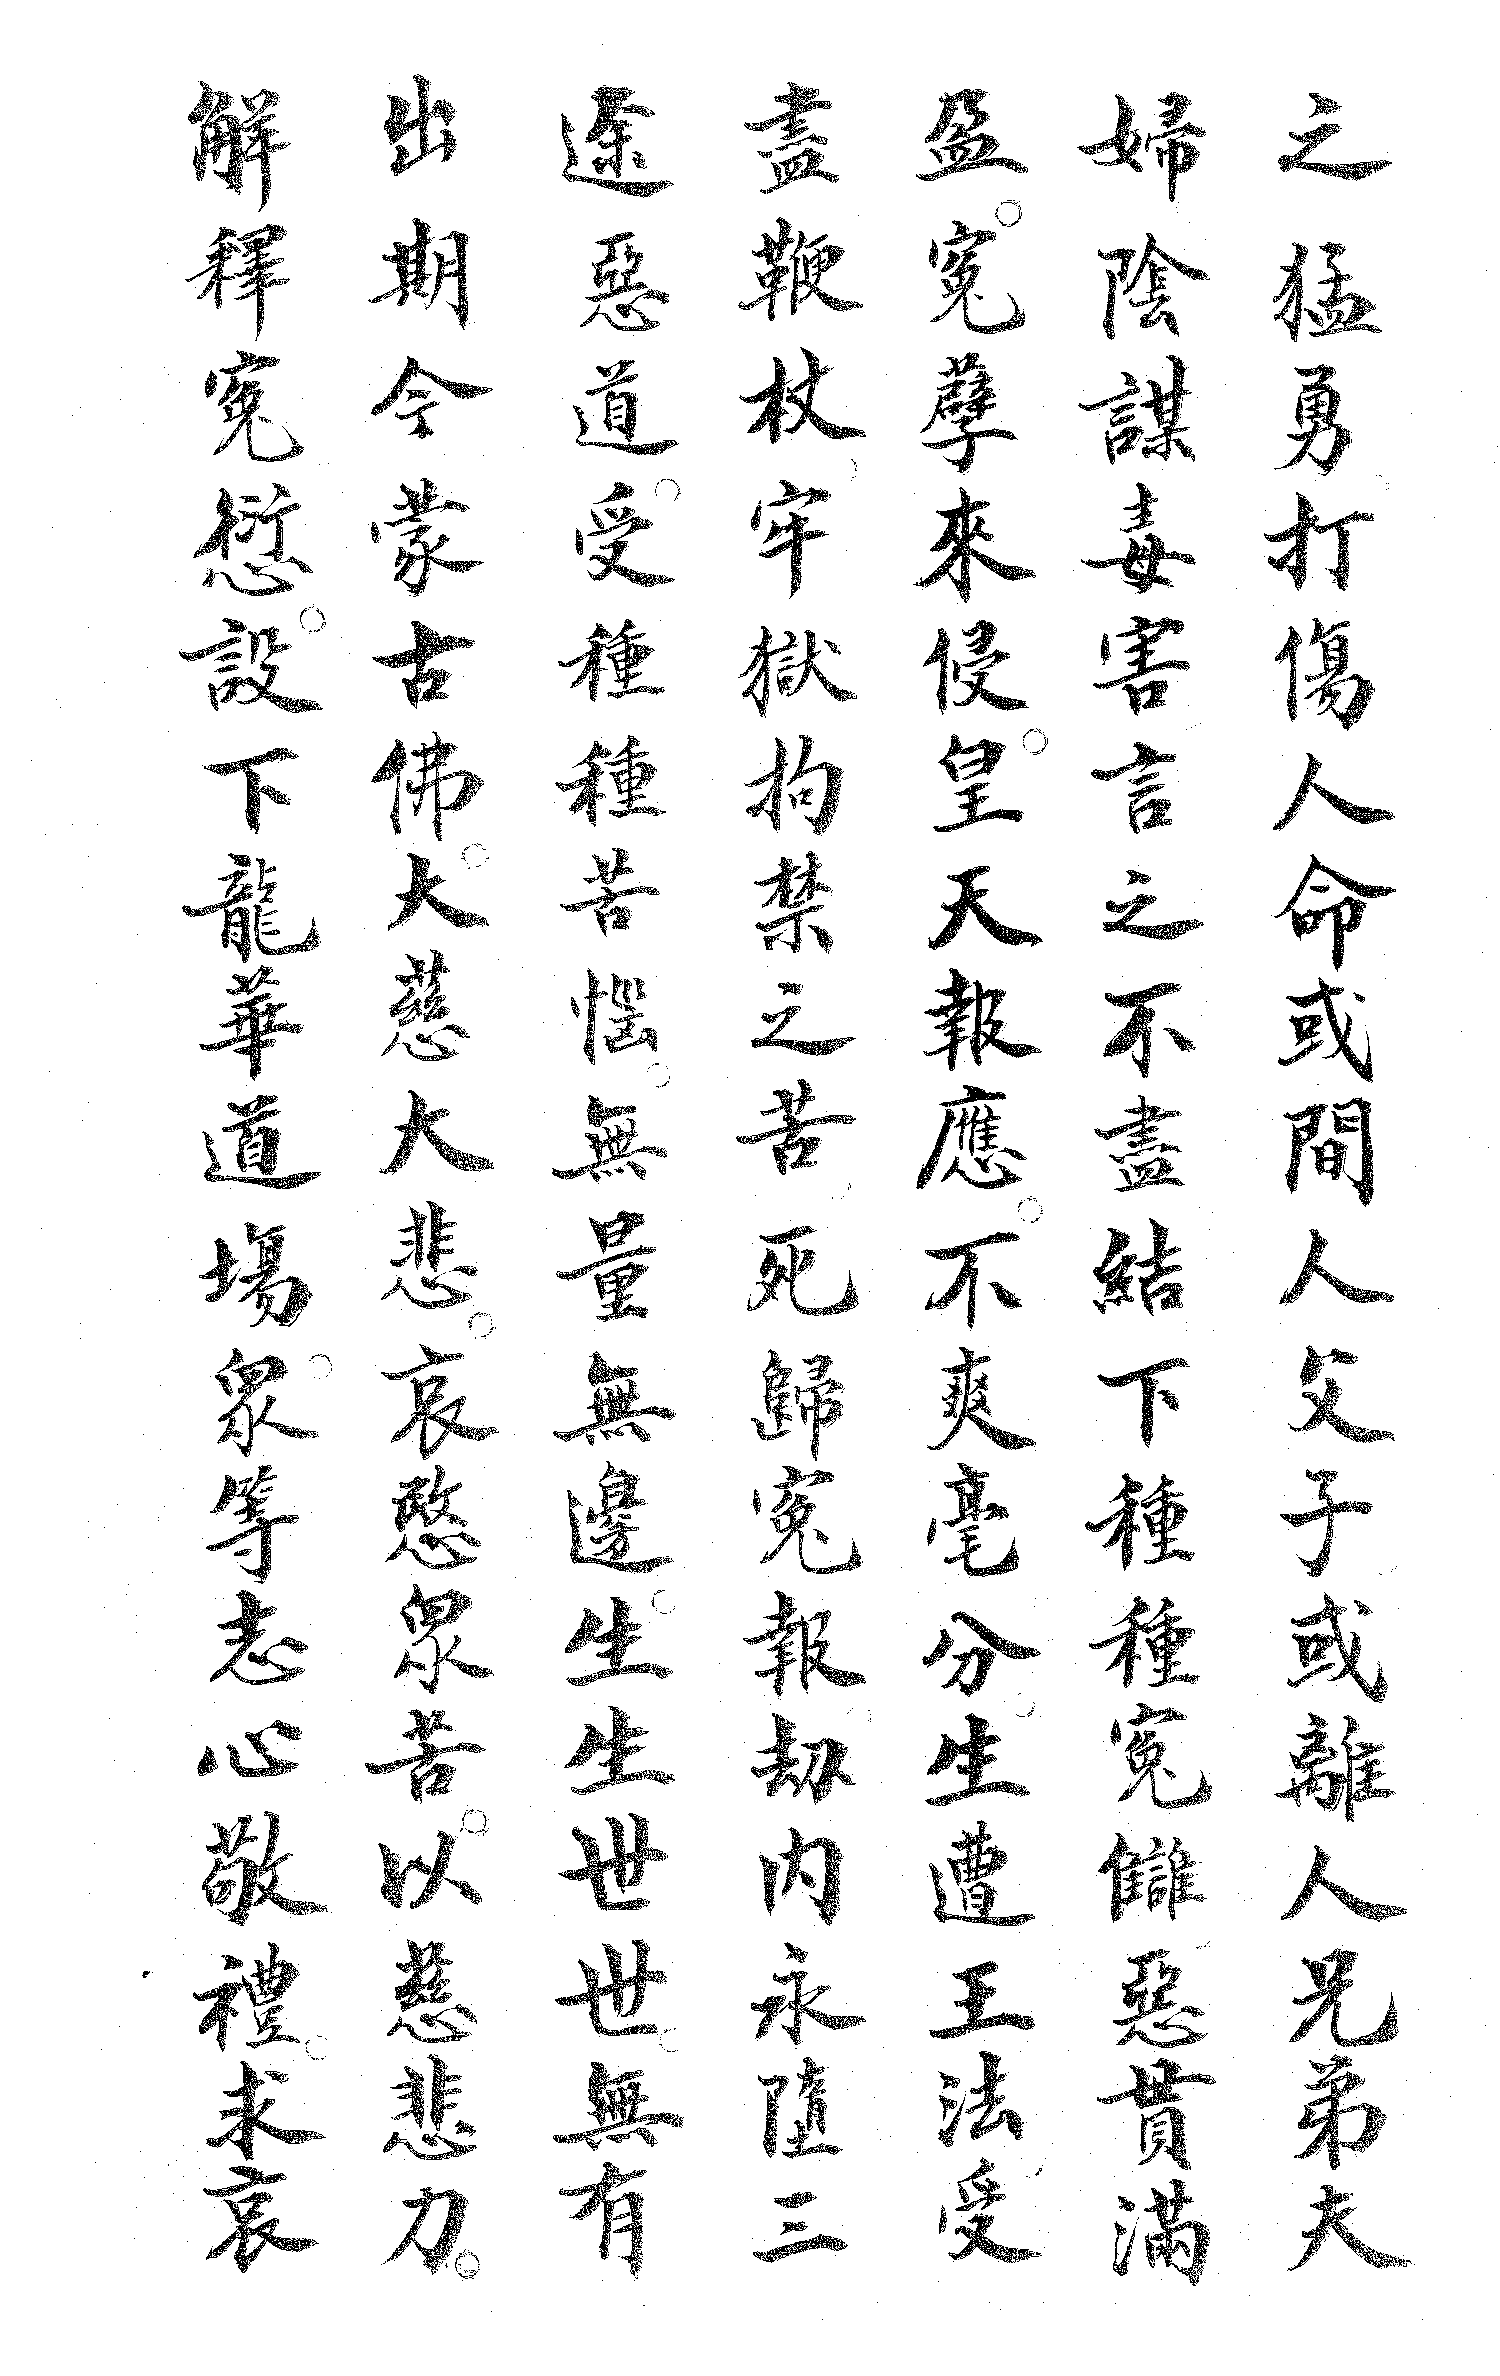 之猛勇打傷人命或間人父子或離人兄弟夫
婦陰謀毒害言之不盡結下種種寃讎惡貫滿
盈。寃孽來侵。皇天報應。不爽毫分。生遭王法受
盡鞭杖。牢獄拘禁之苦。死歸寃報劫。内永墮三
途惡道。受種種苦惱。無量無邊。生生世世。無有
出期今蒙古佛。大慈大悲。哀愍眾苦。以慈悲力。
解釋寃愆。設下龍華道場。眾等志心敬禮。求哀